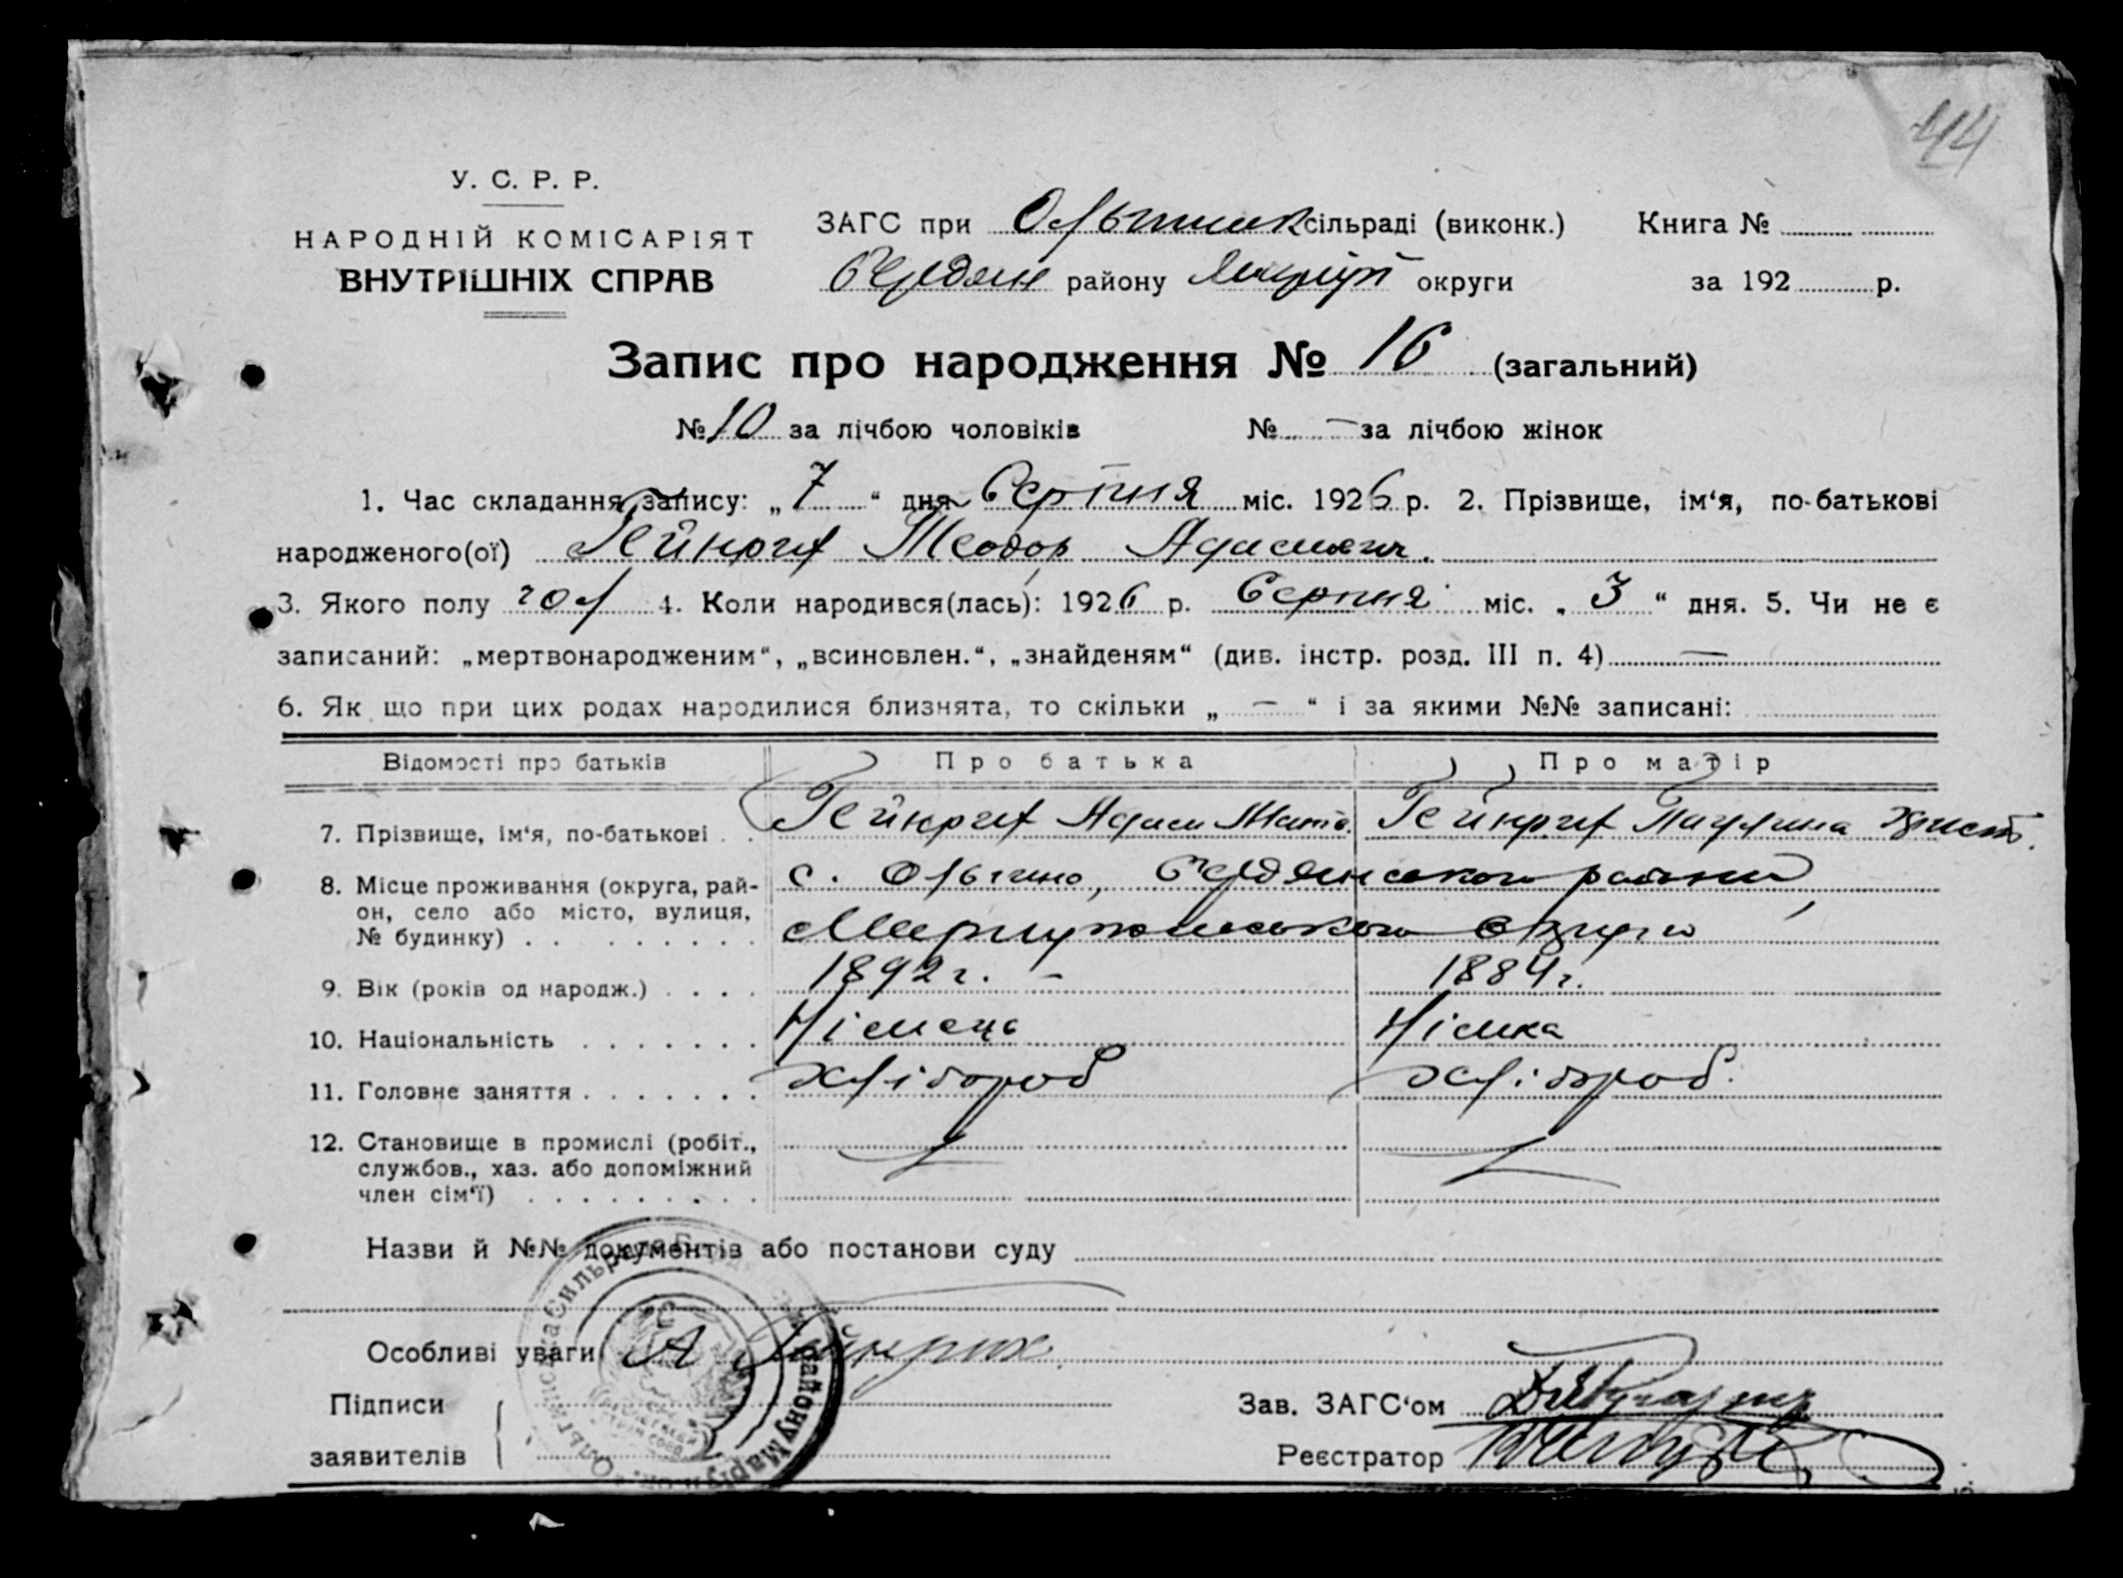 44
У. С. Р. Р.
НАРОДНІЙ КОМІСАРІЯТ
ВНУТРІШНІХ СПРАВ
ЗАГС при Ольгинск сільраді (виконк.) Книга №
Бердян району Маріуп округи за 192 р.
Запис про народження № 16 (загальний)
№ 10 за лічбою чоловіків № — за лічбою жінок
1. Час складання запису: „7“ дня Серпня міс. 1926 р. 2. Прізвище, ім‘я, по-батькові
народженого(ої) Гейнрих Теодор Адамович.
3. Якого полу чол 4. Коли народився(лась): 1926 р. Серпня міс. „3“ дня. 5. Чи не є
записаний: „мертвонародженим“, „всиновлен.“, „знайденям“ (див. інстр. розд. III п. 4) —
6. Як що при цих родах народилися близнята, то скільки „ — “ і за якими №№ записані:
Відомості про батьків Про батька Про матір
7. Прізвище, ім‘я, по-батькові . . Гейнрих Адам Матв. Гейнрих Паулина Христ.
8. Місце проживання (округа, рай- с. Ольгино, Бердянського району,
он, село або місто, вулиця,
№ будинку) . . . . . . . . . Маріупольського округи
9. Вік (років од народж.) . . . . 1892 г. — 1884 г.
10. Національність . . . . . . . Німець Німка
11. Головне заняття . . . . . . . Хлібороб Хлібороб.
12. Становище в промислі (робіт.,
службов., хаз. або допоміжний
член сім‘ї) . . . . . . . . . .
Назви й №№ документів або постанови суду
Особливі уваги А Гейнрих.
Підписи
заявителів
Зав. ЗАГС‘ом
Реєстратор
Ольгинска Сильрада району Маріуп